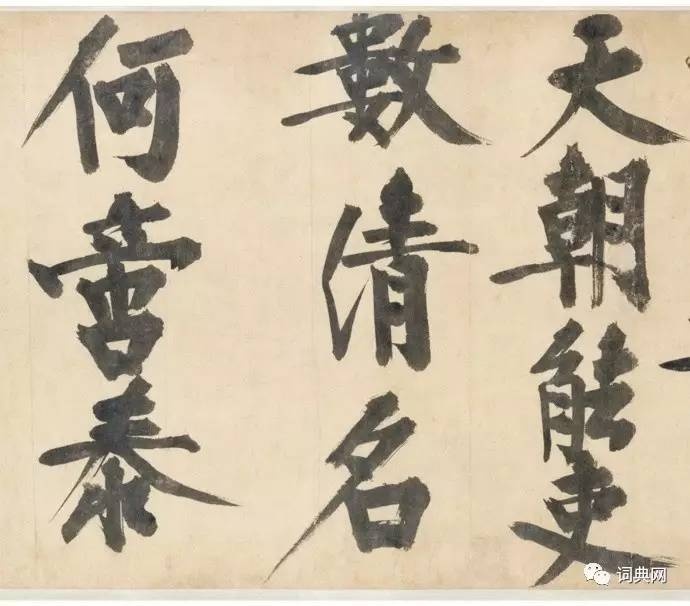 天朝能吏
數清名
何啻泰
词典网